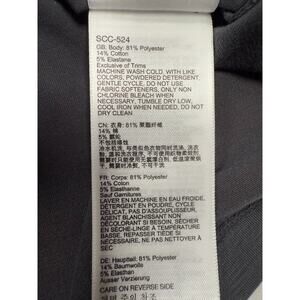 SCC-524
GB: Body: 81% Polyester
14% Cotton
5% Elastane
Exclusive of Trims
MACHINE WASH COLD, WITH LIKE
COLORS, POWDERED DETERGENT,
GENTLE CYCLE, DO NOT USE
FABRIC SOFTENERS, ONLY NON
CHLORINE BLEACH WHEN
NECESSARY, TUMBLE DRY LOW,
COOL IRON WHEN NEEDED, DO NOT
DRY CLEAN
CN: 衣身: 81% 聚酯纤维
14% 棉
5% 氨纶
不包括修饰
FR: Corps: 81% Polyester
14% Coton
5% Elasthane
Sauf Garnitures
LAVER EN MACHINE EN EAU FROIDE,
DÉTERGENT EN POUDRE, CYCLE
DÉLICAT, PAS D'ASSOUPLISSANT,
AGENT BLANCHISSANT NON
DÉCOLORANT SI BESOIN, SÉCHER
EN SÈCHE-LINGE À TEMPÉRATURE
BASSE, REPASSER TIÈDE SI
NÉCESSAIRE, NE PAS NETTOYER À
SEC
DE: Hauptteil: 81% Polyester
14% Baumwolle
5% Elasthan
Ausser Verzierung
CARE ON REVERSE SIDE